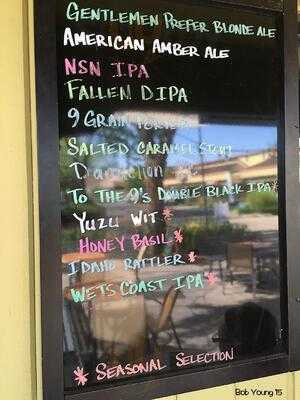 Gentlemen Prefer Blonde Ale
American Amber Ale
NSN IPA
Fallen DIPA
9 Grain Porter
Salted Caramel Stout
Dandelion
To The 9's Double Black IPA*
Yuzu Wit *
Honey Basil *
Idaho Rattler *
Wets Coast IPA *
* Seasonal Selection
Bob Young 15